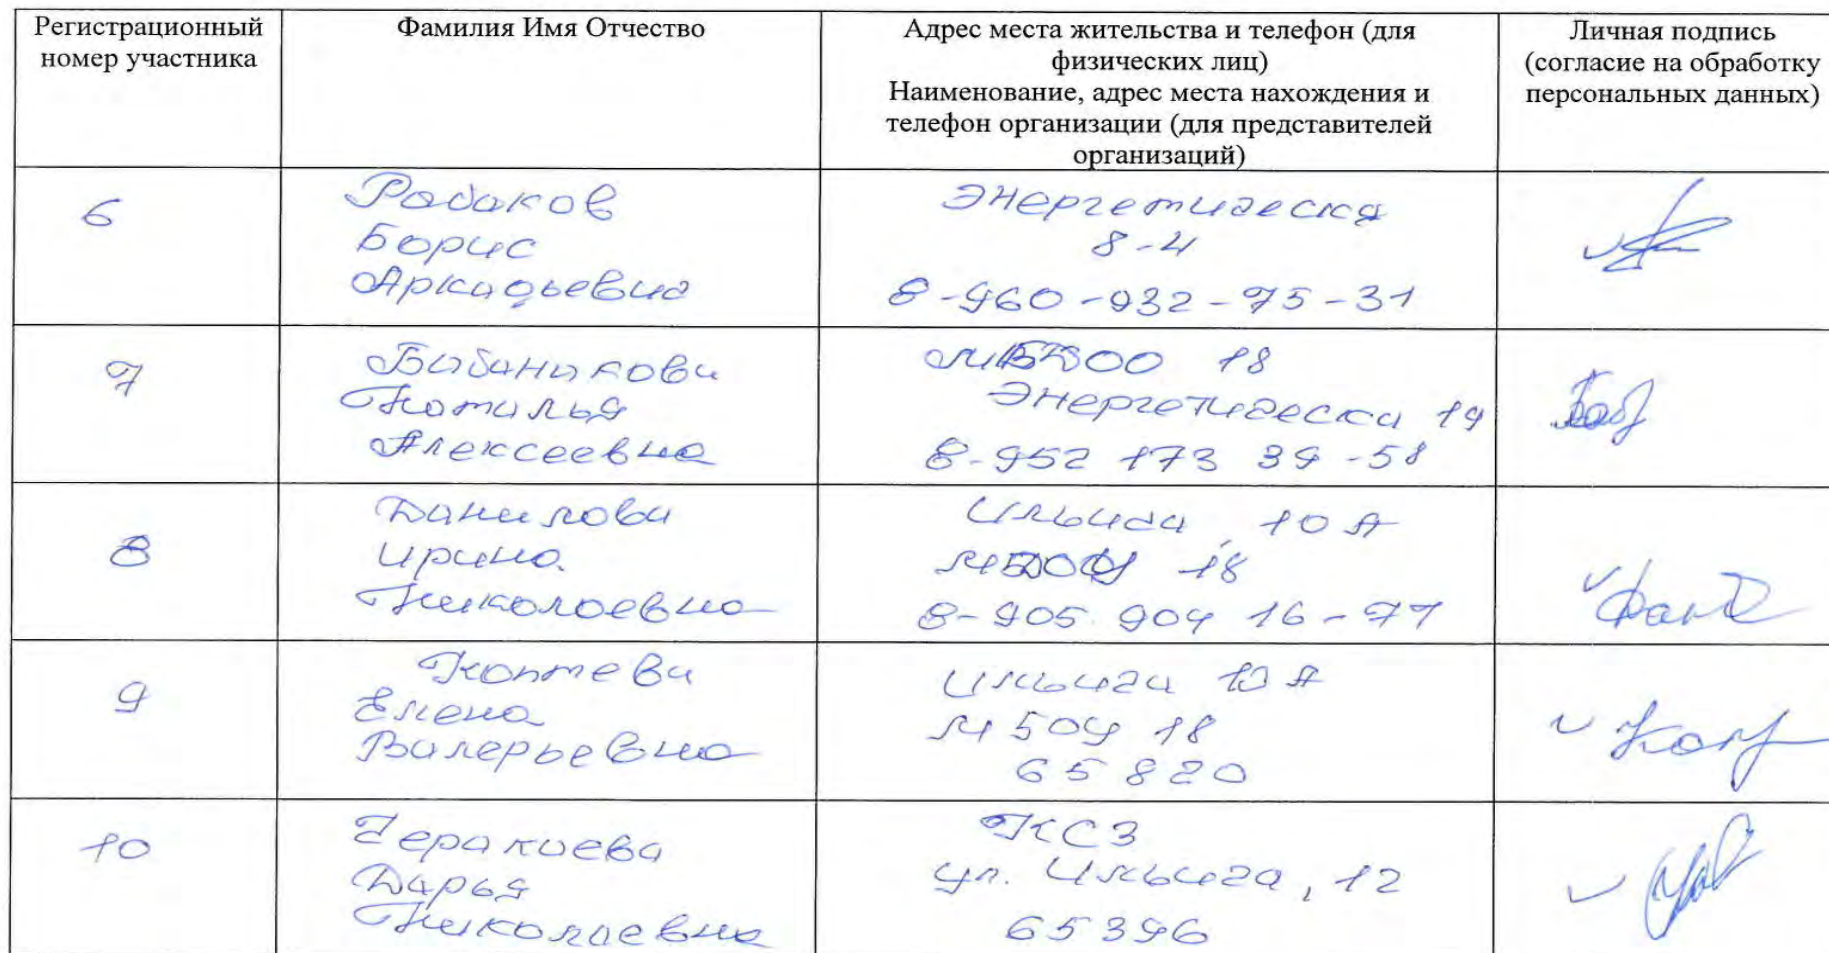 Регистрационный номер участника
Фамилия Имя Отчество
Адрес места жительства и телефон (для физических лиц)
Наименование, адрес места нахождения и телефон организации (для представителей организаций)
Личная подпись (согласие на обработку персональных данных)
6
Борис
Аркадьевич
Энергетическая
8-4
8-960-932-75-31
7
Наталья
Алексеевна
18
Энергетическа 19
8-952 173 39-58
8
Данилова
Ирина
Николаевна
Ильича, 10А
18
8-905 904 16-77
9
Коптева
Елена
Валерьевна
Ильича 10А
18
65820
10
Дарья
Николаевна
КСЗ
ул. Ильича, 12
65396